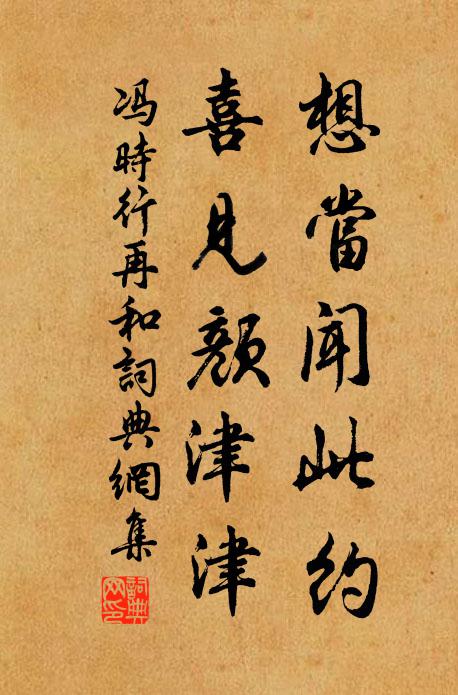 想當聞此約
喜見顏津津
冯時行再和詞典網集
詞典
网印